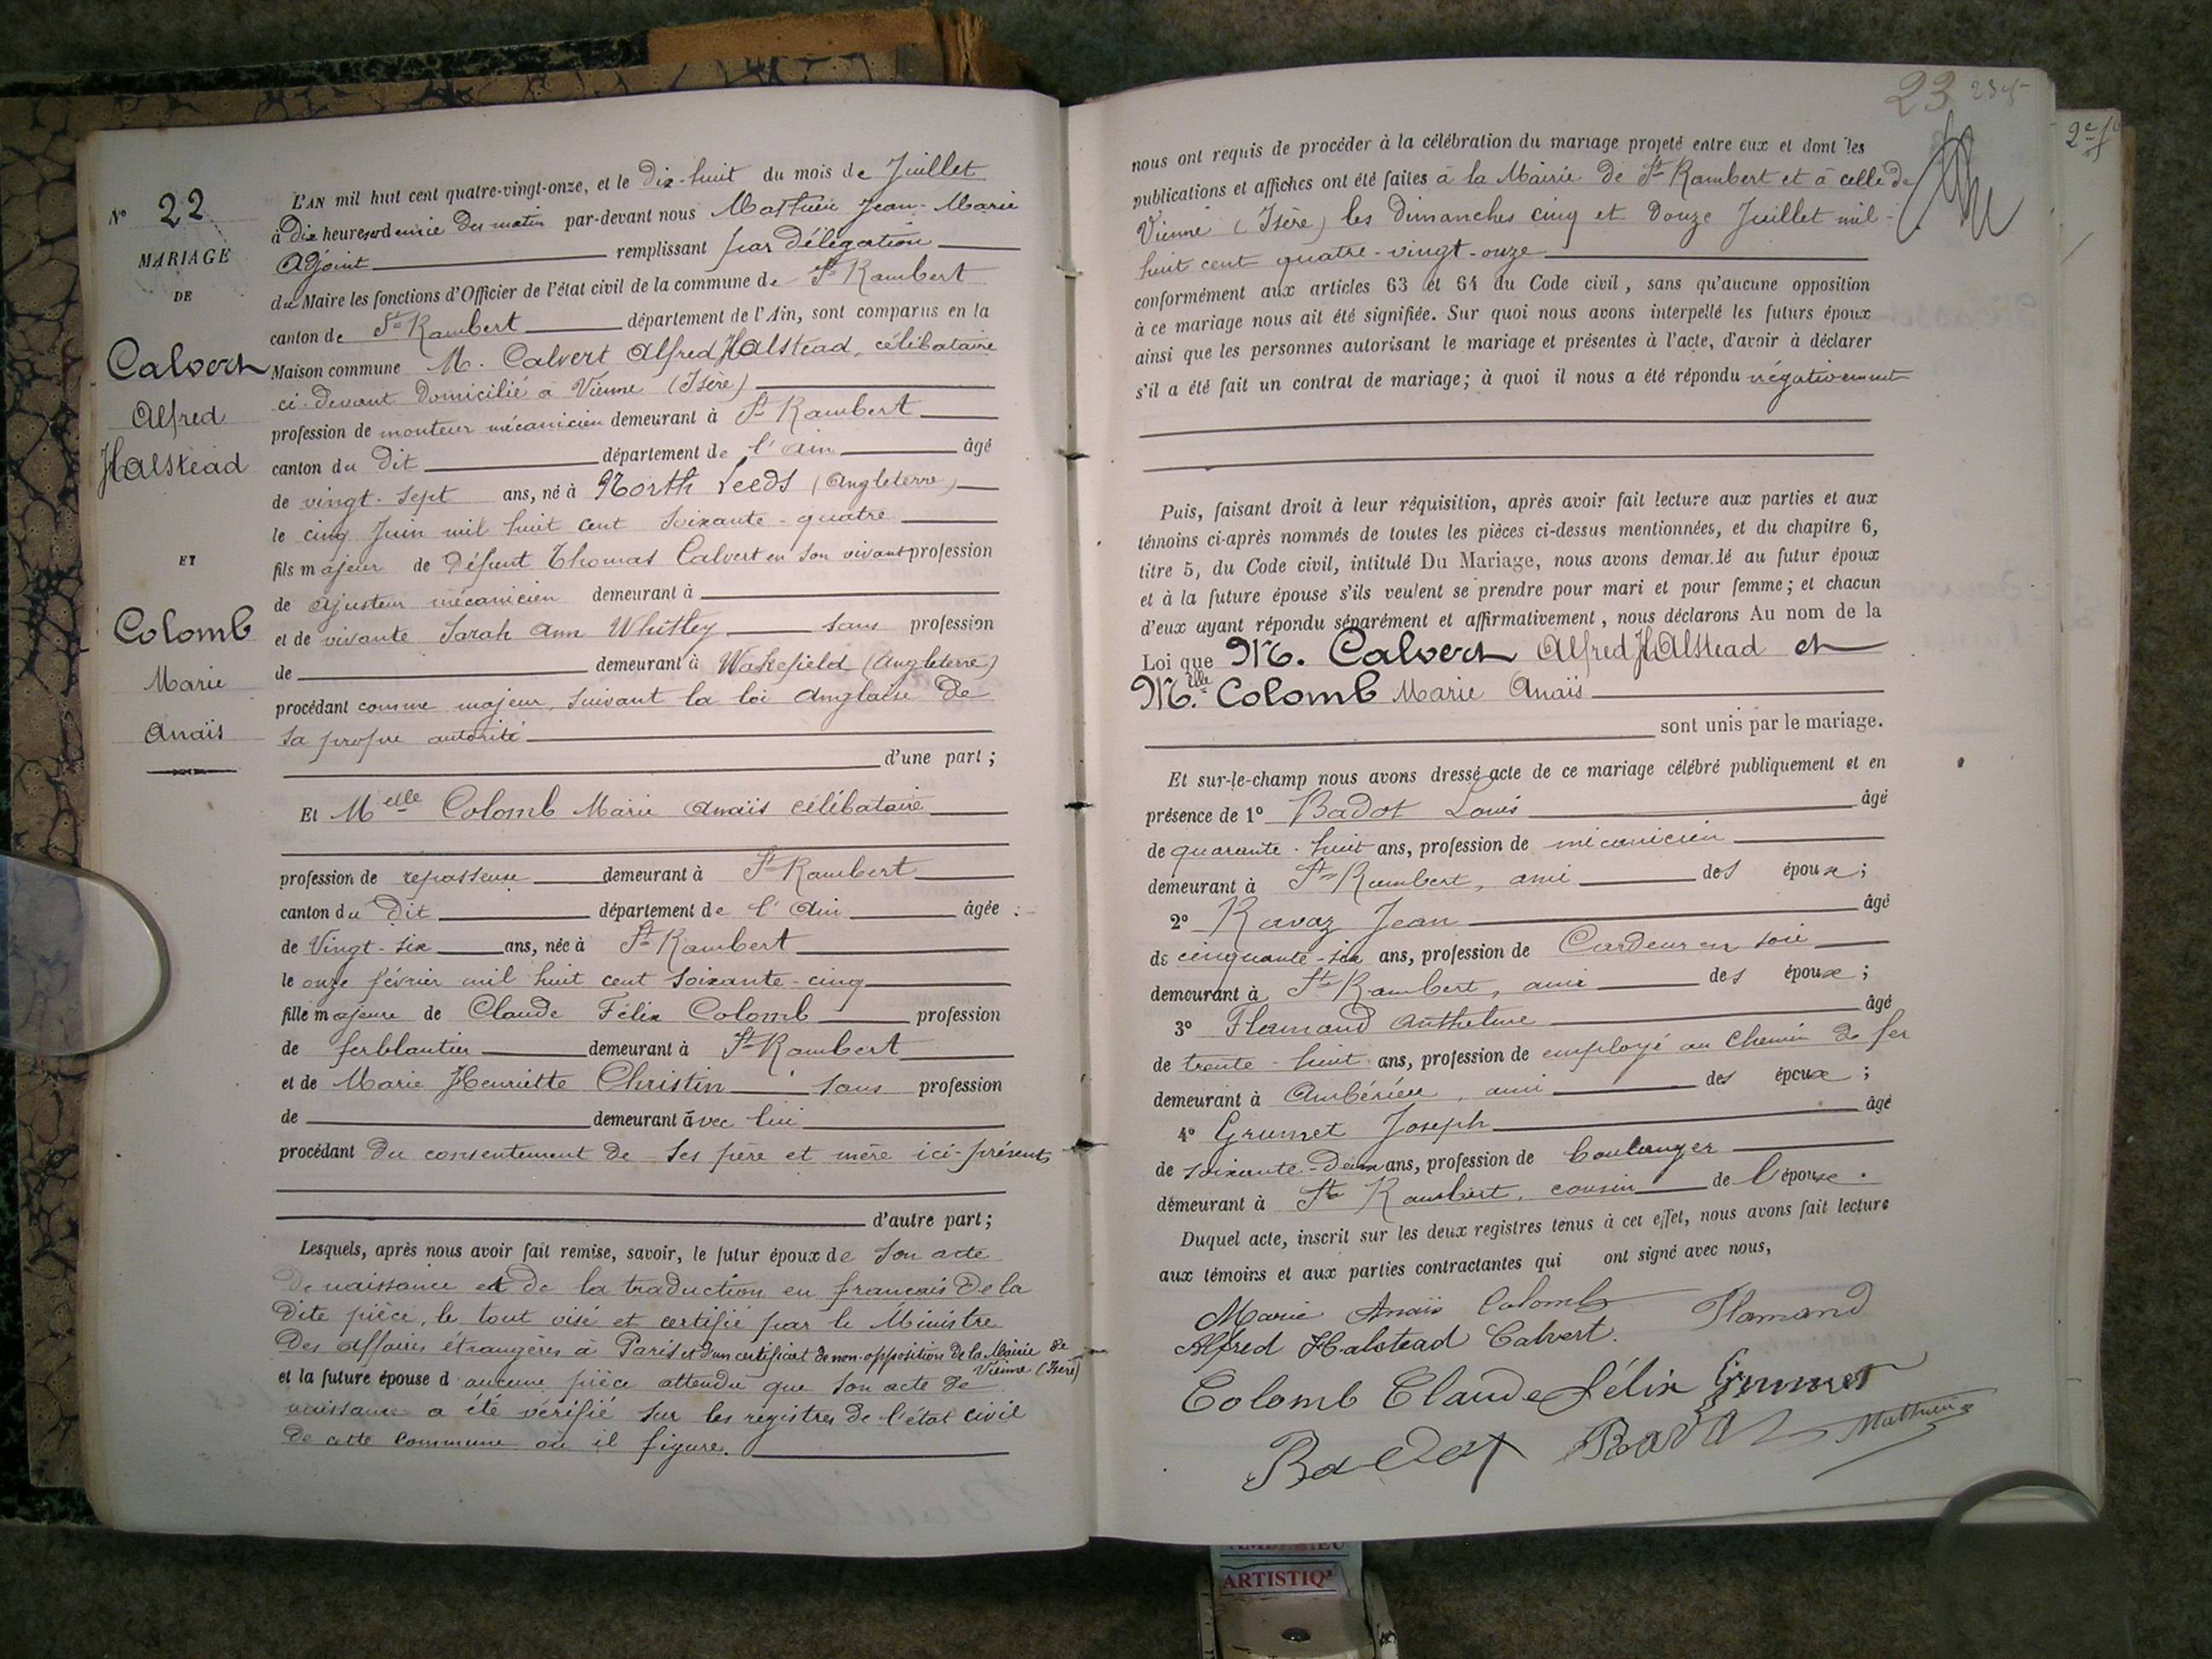 N° 22
MARIAGE
DE
Calvert
Alfred
Halstead
ET
Colomb
Marie
Anaïs
L'AN mil huit cent quatre-vingt-onze, et le Dix-huit du mois de Juillet
à Dix heures et demie du matin par-devant nous Mathieu Jean-Marie
Adjoint remplissant par délégation
du Maire les fonctions d'Officier de l'état civil de la commune de St Rambert
canton de St Rambert département de l'Ain, sont comparus en la
Maison commune M. Calvert Alfred Halstead, célibataire
ci-devant domicilié à Vienne (Isère)
profession de monteur mécanicien demeurant à St Rambert
canton du dit département de l'ain âgé
de vingt-sept ans, né à North Leeds (Angleterre)
le cinq Juin mil huit cent soixante-quatre
fils majeur de Défunt Thomas Calvert en son vivant profession
de ajusteur mécanicien demeurant à
et de vivante Sarah Ann Whitley sans profession
de demeurant à Wakefield (Angleterre)
procédant comme majeur, suivant la loi Anglaise de
sa propre autorité
d'une part;
Et Melle Colomb Marie Anaïs célibataire
profession de repasseuse demeurant à St Rambert
canton du dit département de l'Ain âgée
de Vingt-six ans, née à St Rambert
le onze février mil huit cent soixante-cinq
fille majeure de Claude Félix Colomb profession
de ferblantier demeurant à St Rambert
et de Marie Henriette Christin sans profession
de demeurant avec lui
procédant du consentement de ses père et mère ici-présents
d'autre part;
Lesquels, après nous avoir fait remise, savoir, le futur époux de son acte
de naissance et de la traduction en français de la
dite pièce, le tout visé et certifié par le Ministre
des affaires étrangères à Paris et d'un certificat de non-opposition de la Mairie de
Vienne (Isère)
et la future épouse d'aucune pièce attendu que son acte de
naissance a été vérifié sur les registres de l'état civil
de cette commune où il figure.
23
2e f
nous ont requis de procéder à la célébration du mariage projeté entre eux et dont les
publications et affiches ont été faites à la Mairie de St Rambert et à celle de
Vienne (Isère) les dimanches cinq et douze Juillet mil-
huit cent quatre-vingt-onze
conformément aux articles 63 et 64 du Code civil, sans qu'aucune opposition
à ce mariage nous ait été signifiée. Sur quoi nous avons interpellé les futurs époux
ainsi que les personnes autorisant le mariage et présentes à l'acte, d'avoir à déclarer
s'il a été fait un contrat de mariage; à quoi il nous a été répondu négativement
Puis, faisant droit à leur réquisition, après avoir fait lecture aux parties et aux
témoins ci-après nommés de toutes les pièces ci-dessus mentionnées, et du chapitre 6,
titre 5, du Code civil, intitulé Du Mariage, nous avons demandé au futur époux
et à la future épouse s'ils veulent se prendre pour mari et pour femme; et chacun
d'eux ayant répondu séparément et affirmativement, nous déclarons Au nom de la
Loi que M. Calvert Alfred Halstead et
Melle Colomb Marie Anaïs
sont unis par le mariage.
Et sur-le-champ nous avons dressé acte de ce mariage célébré publiquement et en
présence de 1° Badot Louis âgé
de quarante-huit ans, profession de mécanicien
demeurant à St Rambert, ami des époux;
2° Ravaz Jean âgé
de cinquante-six ans, profession de Cardeur en soie
demeurant à St Rambert, ami des époux;
3° Flamand Anthelme âgé
de trente-huit ans, profession de employé au Chemin de fer
demeurant à Ambérieu, ami des époux;
4° Grumet Joseph âgé
de soixante-deux ans, profession de boulanger
demeurant à St Rambert, cousin de l'épouse.
Duquel acte, inscrit sur les deux registres tenus à cet effet, nous avons fait lecture
aux témoins et aux parties contractantes qui ont signé avec nous,
Marie Anaïs Colomb Flamand
Alfred Halstead Calvert.
Colomb Claude Félix Grumet
Badot Ravaz Mathieu
AMBERIEU
ARTISTIQ